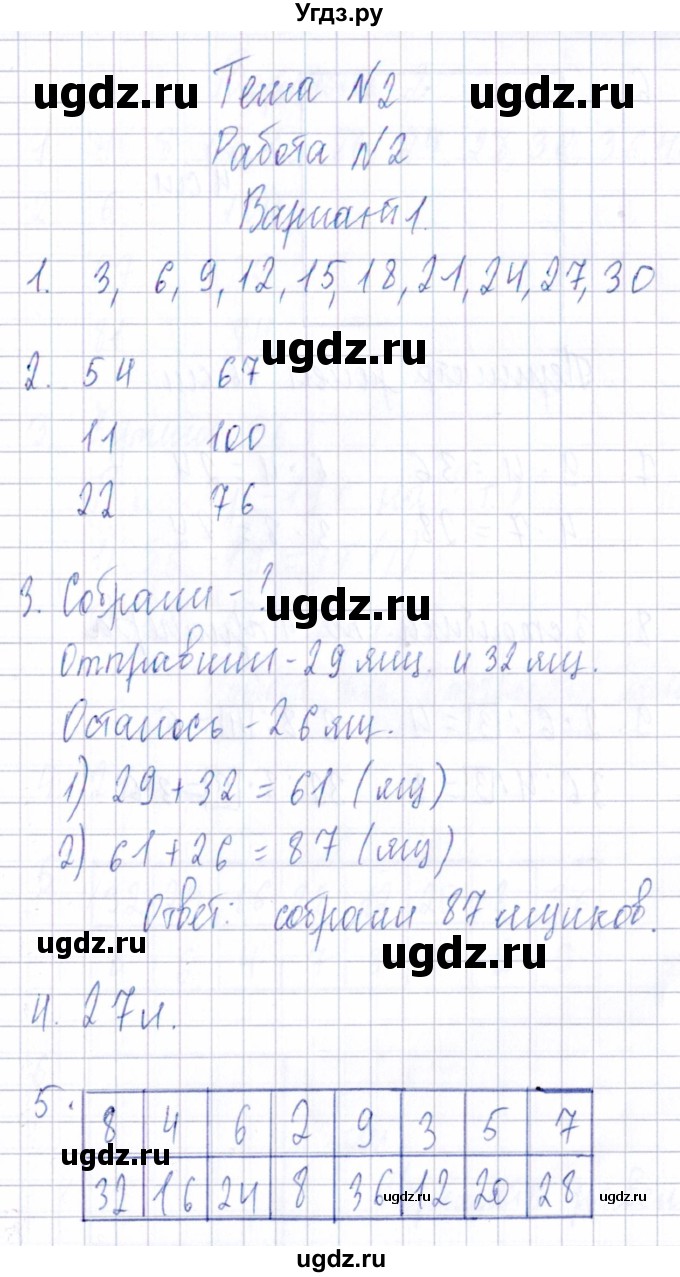 Угдз.ру
ugdz.ru Тема №2 ugdz.ru
Работа №2
Вариант 1.
1. 3, 6, 9, 12, 15, 18, 21, 24, 27, 30
ugdz.ru
2. 54 67
11 100
22 76
3. Собрали - ?
ugdz.ru
Отправили - 29 ящ. и 32 ящ.
Осталось - 26 ящ.
1) 29 + 32 = 61 (ящ)
2) 61 + 26 = 87 (ящ)
Ответ: собрали 87 ящиков.
ugdz.ru
ugdz.ru
4. 27 л.
5. 8 4 6 2 9 3 5 7
ugdz.ru
32 16 24 8 36 12 20 28
ugdz.ru
ugdz.ru
ugdz.ru